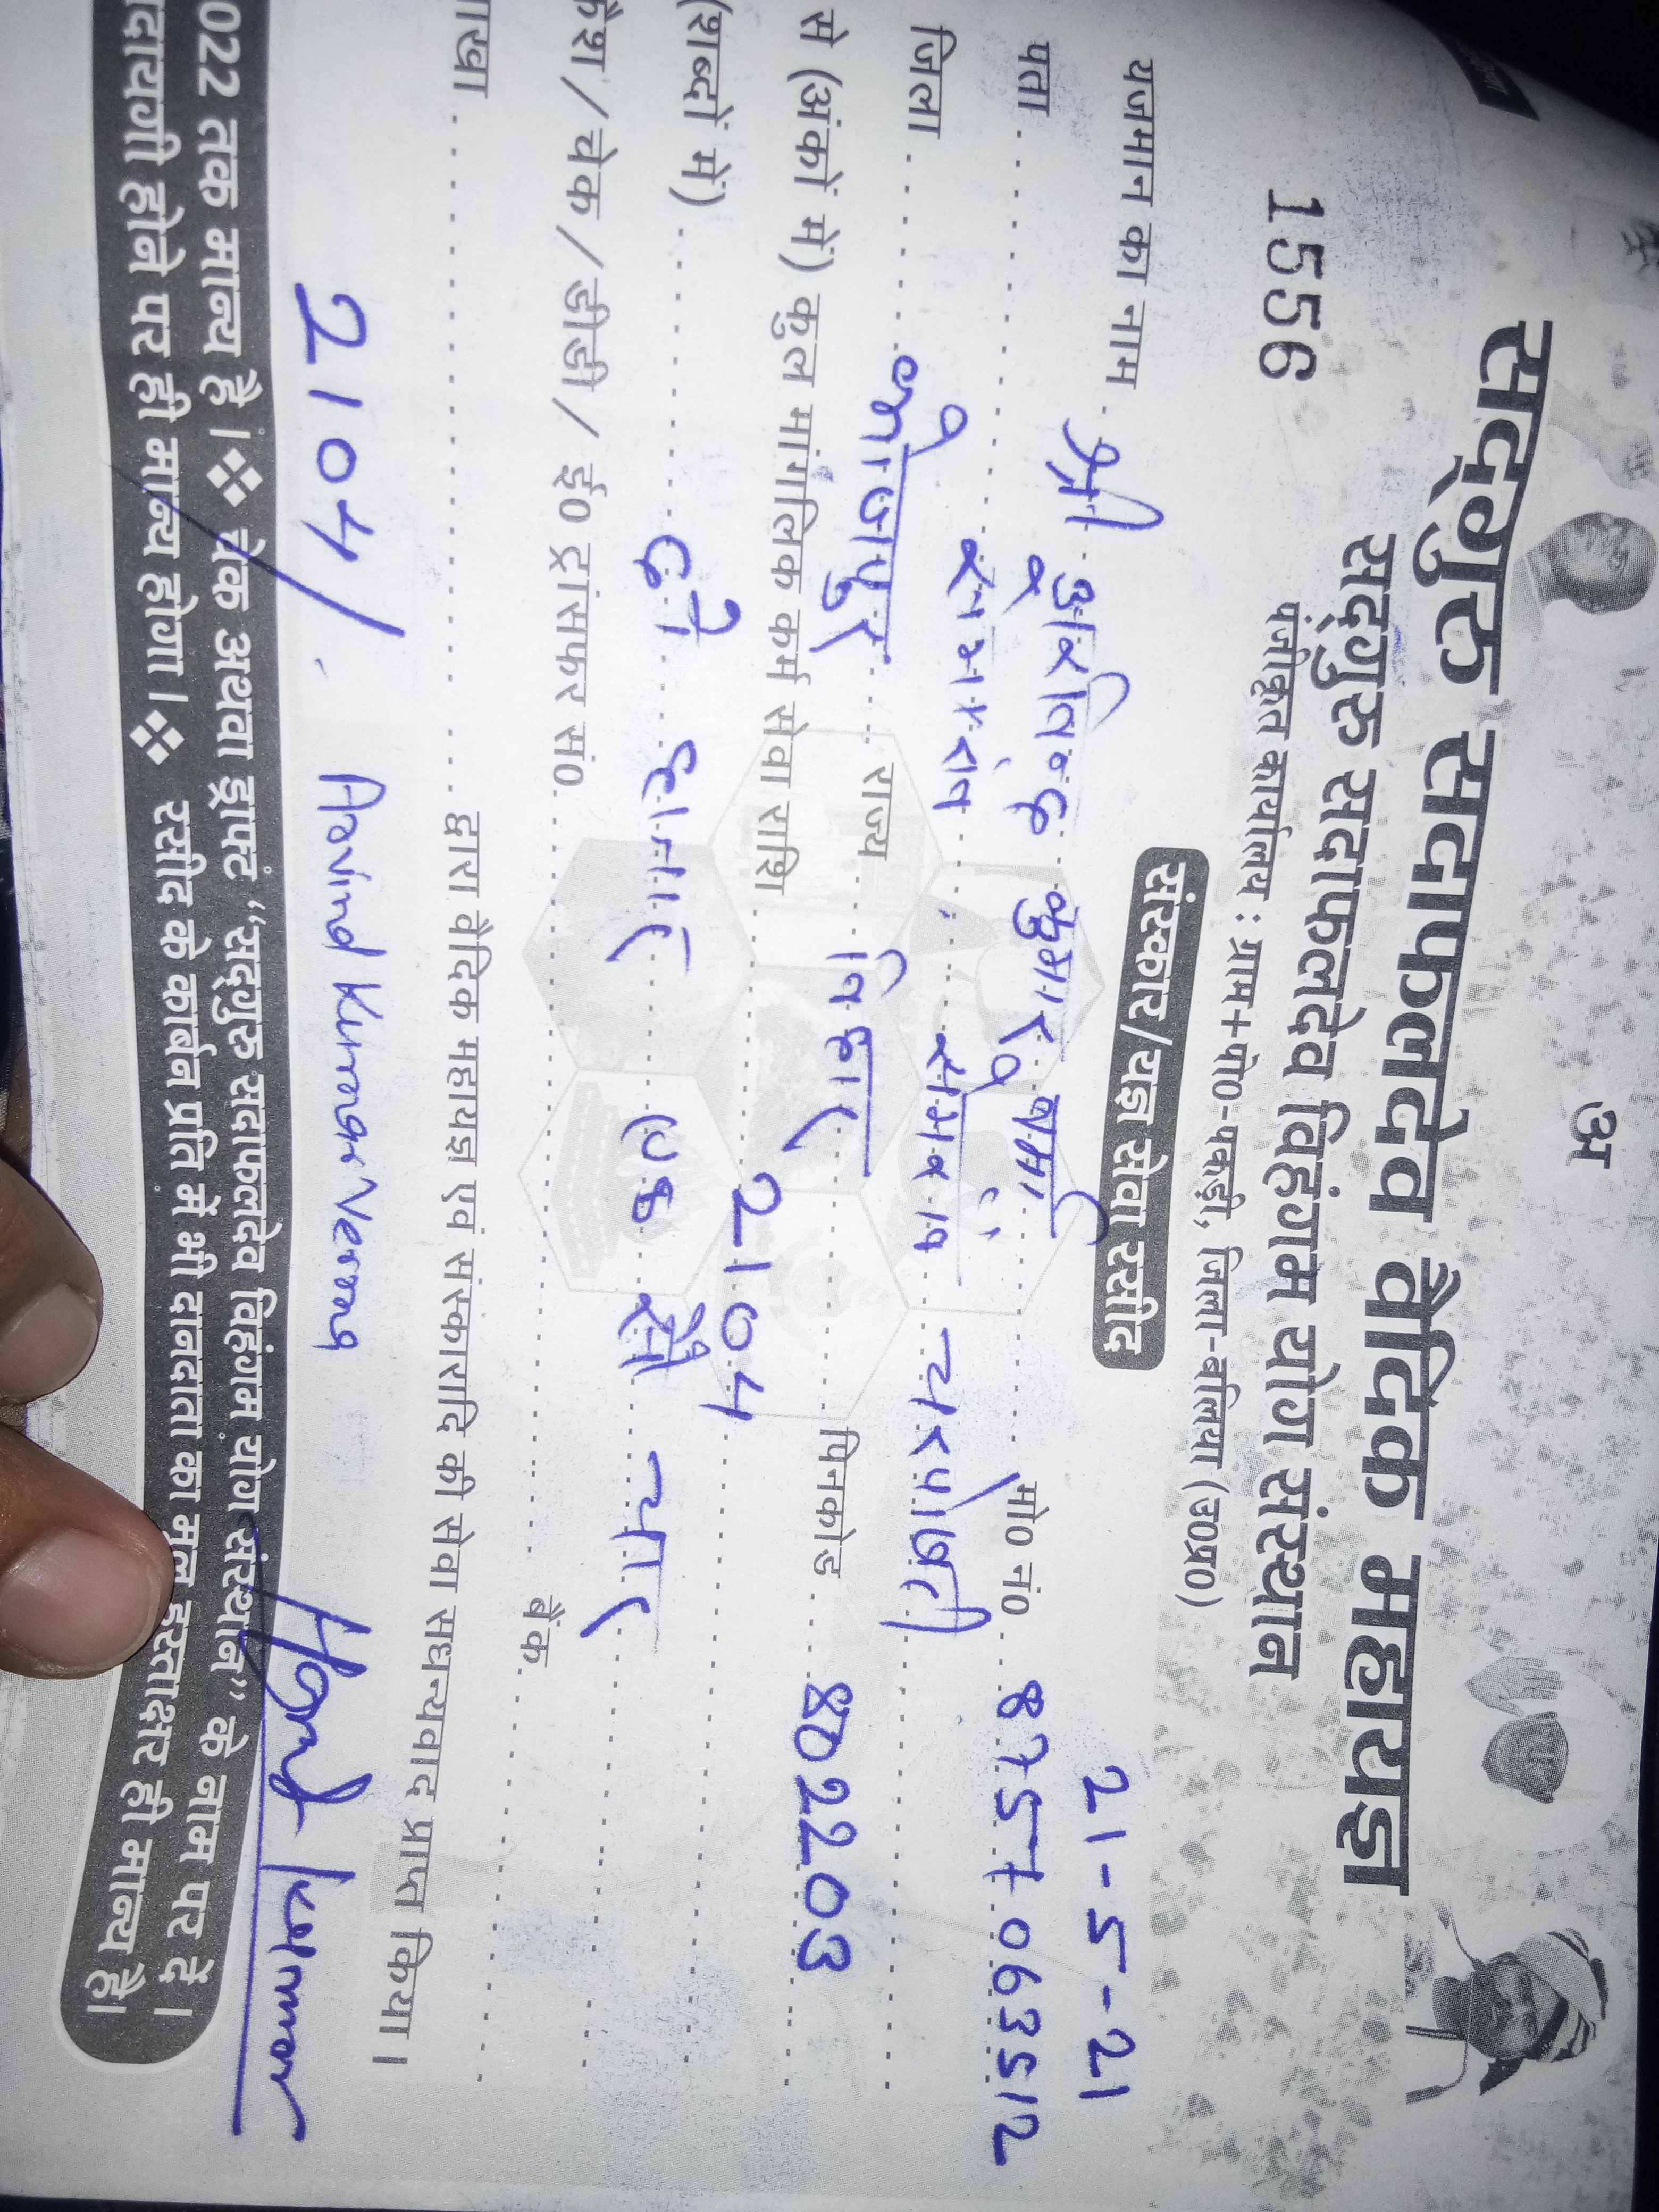 अ
सद्गुरु सदाफलदेव वैदिक महायज्ञ
सद्गुरु सदाफलदेव विहंगम योग संस्थान
पंजीकृत कार्यालय : ग्राम+पो०-पकड़ी, जिला-बलिया (उ०प्र०)
1556
संस्कार/यज्ञ सेवा रसीद
21-5-21
यजमान का नाम श्री अरविन्द कुमार वर्मा
पता मो० नं० 8757063512
जिला भोजपुर राज्य बिहार पिनकोड 802203
से (अंकों में) कुल मांगलिक कर्म सेवा राशि 2104
(शब्दों में) दो हजार एक सौ चार
कैश/चेक/डीडी/ई० ट्रांसफर सं० बैंक
शाखा द्वारा वैदिक महायज्ञ एवं संस्कारादि की सेवा सधन्यवाद प्राप्त किया।
2104/ Arvind Kumar Verma
022 तक मान्य है। ❖ चेक अथवा ड्राफ्ट “सद्गुरु सदाफलदेव विहंगम योग संस्थान” के नाम पर दें।
दायगी होने पर ही मान्य होगा। ❖ रसीद के कार्बन प्रति में भी दानदाता का मूल हस्ताक्षर ही मान्य है।